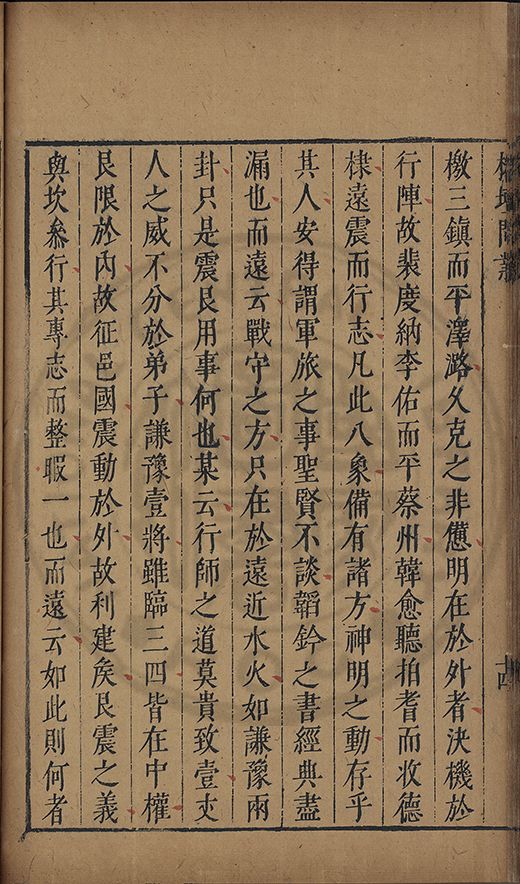 檄三鎮而平澤潞久克之非憊明在於外者決機於
行陣故裴度納李佑而平蔡州韓愈聽拍耆而收德
棣遠震而行志凡此八象備有諸方神明之動存乎
其人安得謂軍旅之事聖賢不談韜鈐之書經典盡
漏也而遠云戰守之方只在於遠近水火如謙豫兩
卦只是震艮用事何也某云行師之道莫貴致壹丈
人之威不分於弟子謙豫壹將雖臨三四皆在中權
艮限於內故征邑國震動於外故利建矦艮震之義
與坎叅行其專志而整暇一也而遠云如此則何者